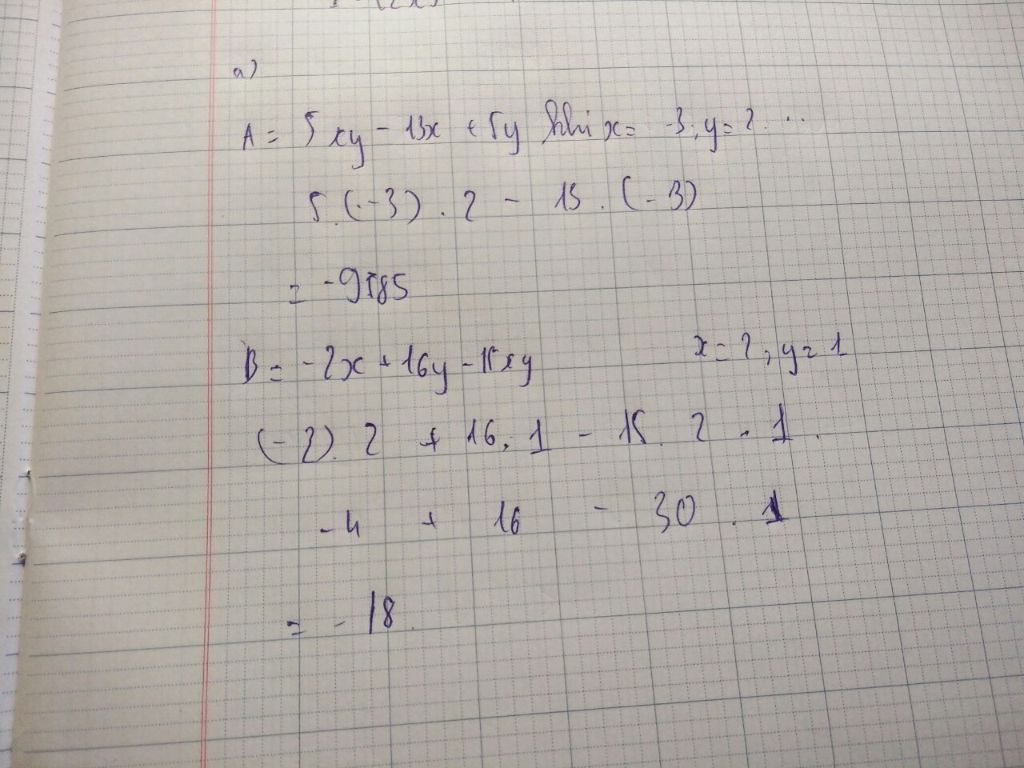 a)
A = 5xy - 13x + 5y khi x = -3, y = 2...
5.(-3).2 - 13.(-3)
= -9585
B = -2x + 16y - 15xy x = 2, y = 1
(-2).2 + 16.1 - 15.2.1.
-4 + 16 - 30.1
= -18